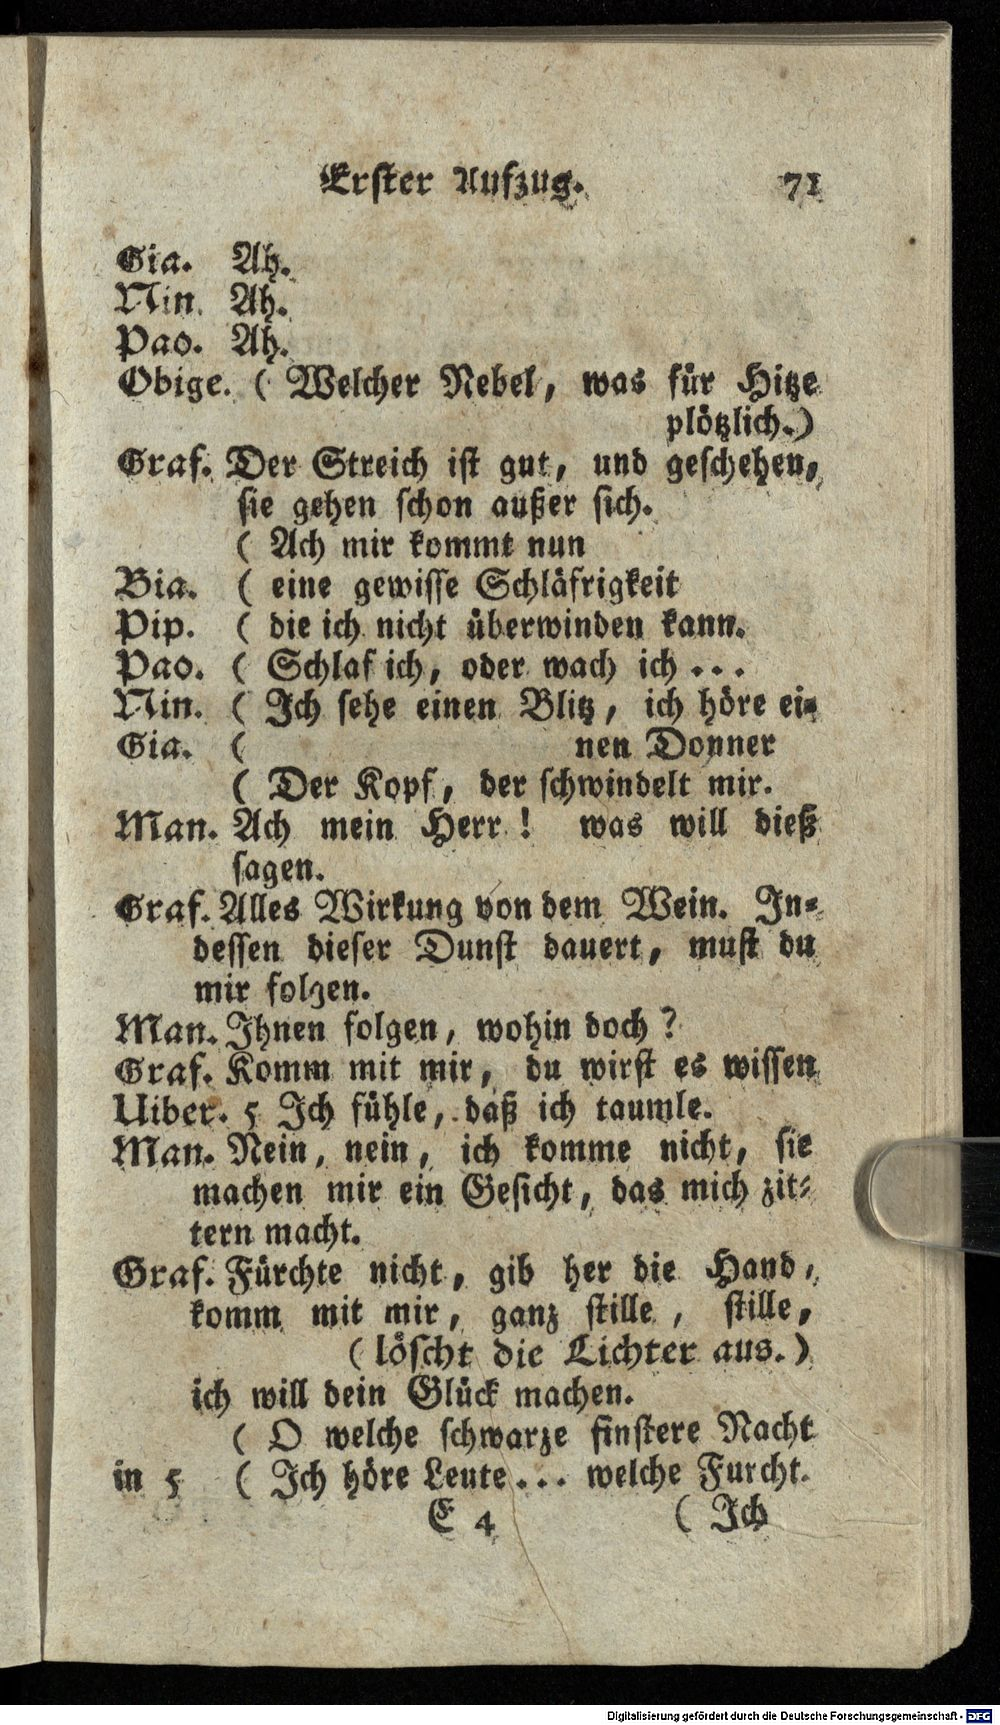 Erster Aufzug. 71
Gia. Ah.
Nin. Ah.
Pao. Ah.
Obige. ( Welcher Nebel, was für Hitze
plötzlich.)
Graf. Der Streich ist gut, und geschehen,
sie gehen schon außer sich.
( Ach mir kommt nun
Bia. ( eine gewisse Schläfrigkeit
Pip. ( die ich nicht überwinden kann.
Pao. ( Schlaf ich, oder wach ich ...
Nin. ( Ich sehe einen Blitz, ich höre ei-
Gia. ( nen Donner
( Der Kopf, der schwindelt mir.
Man. Ach mein Herr! was will dieß
sagen.
Graf. Alles Wirkung von dem Wein. In-
dessen dieser Dunst dauert, must du
mir folgen.
Man. Ihnen folgen, wohin doch?
Graf. Komm mit mir, du wirst es wissen
Uiber. 5 Ich fühle, daß ich taumle.
Man. Nein, nein, ich komme nicht, sie
machen mir ein Gesicht, das mich zit-
tern macht.
Graf. Fürchte nicht, gib her die Hand,
komm mit mir, ganz stille, stille,
(löscht die Lichter aus.)
ich will dein Glück machen.
( O welche schwarze finstere Nacht
in 5 ( Ich höre Leute... welche Furcht.
E 4 ( Ich
Digitalisierung gefördert durch die Deutsche Forschungsgemeinschaft - DFG